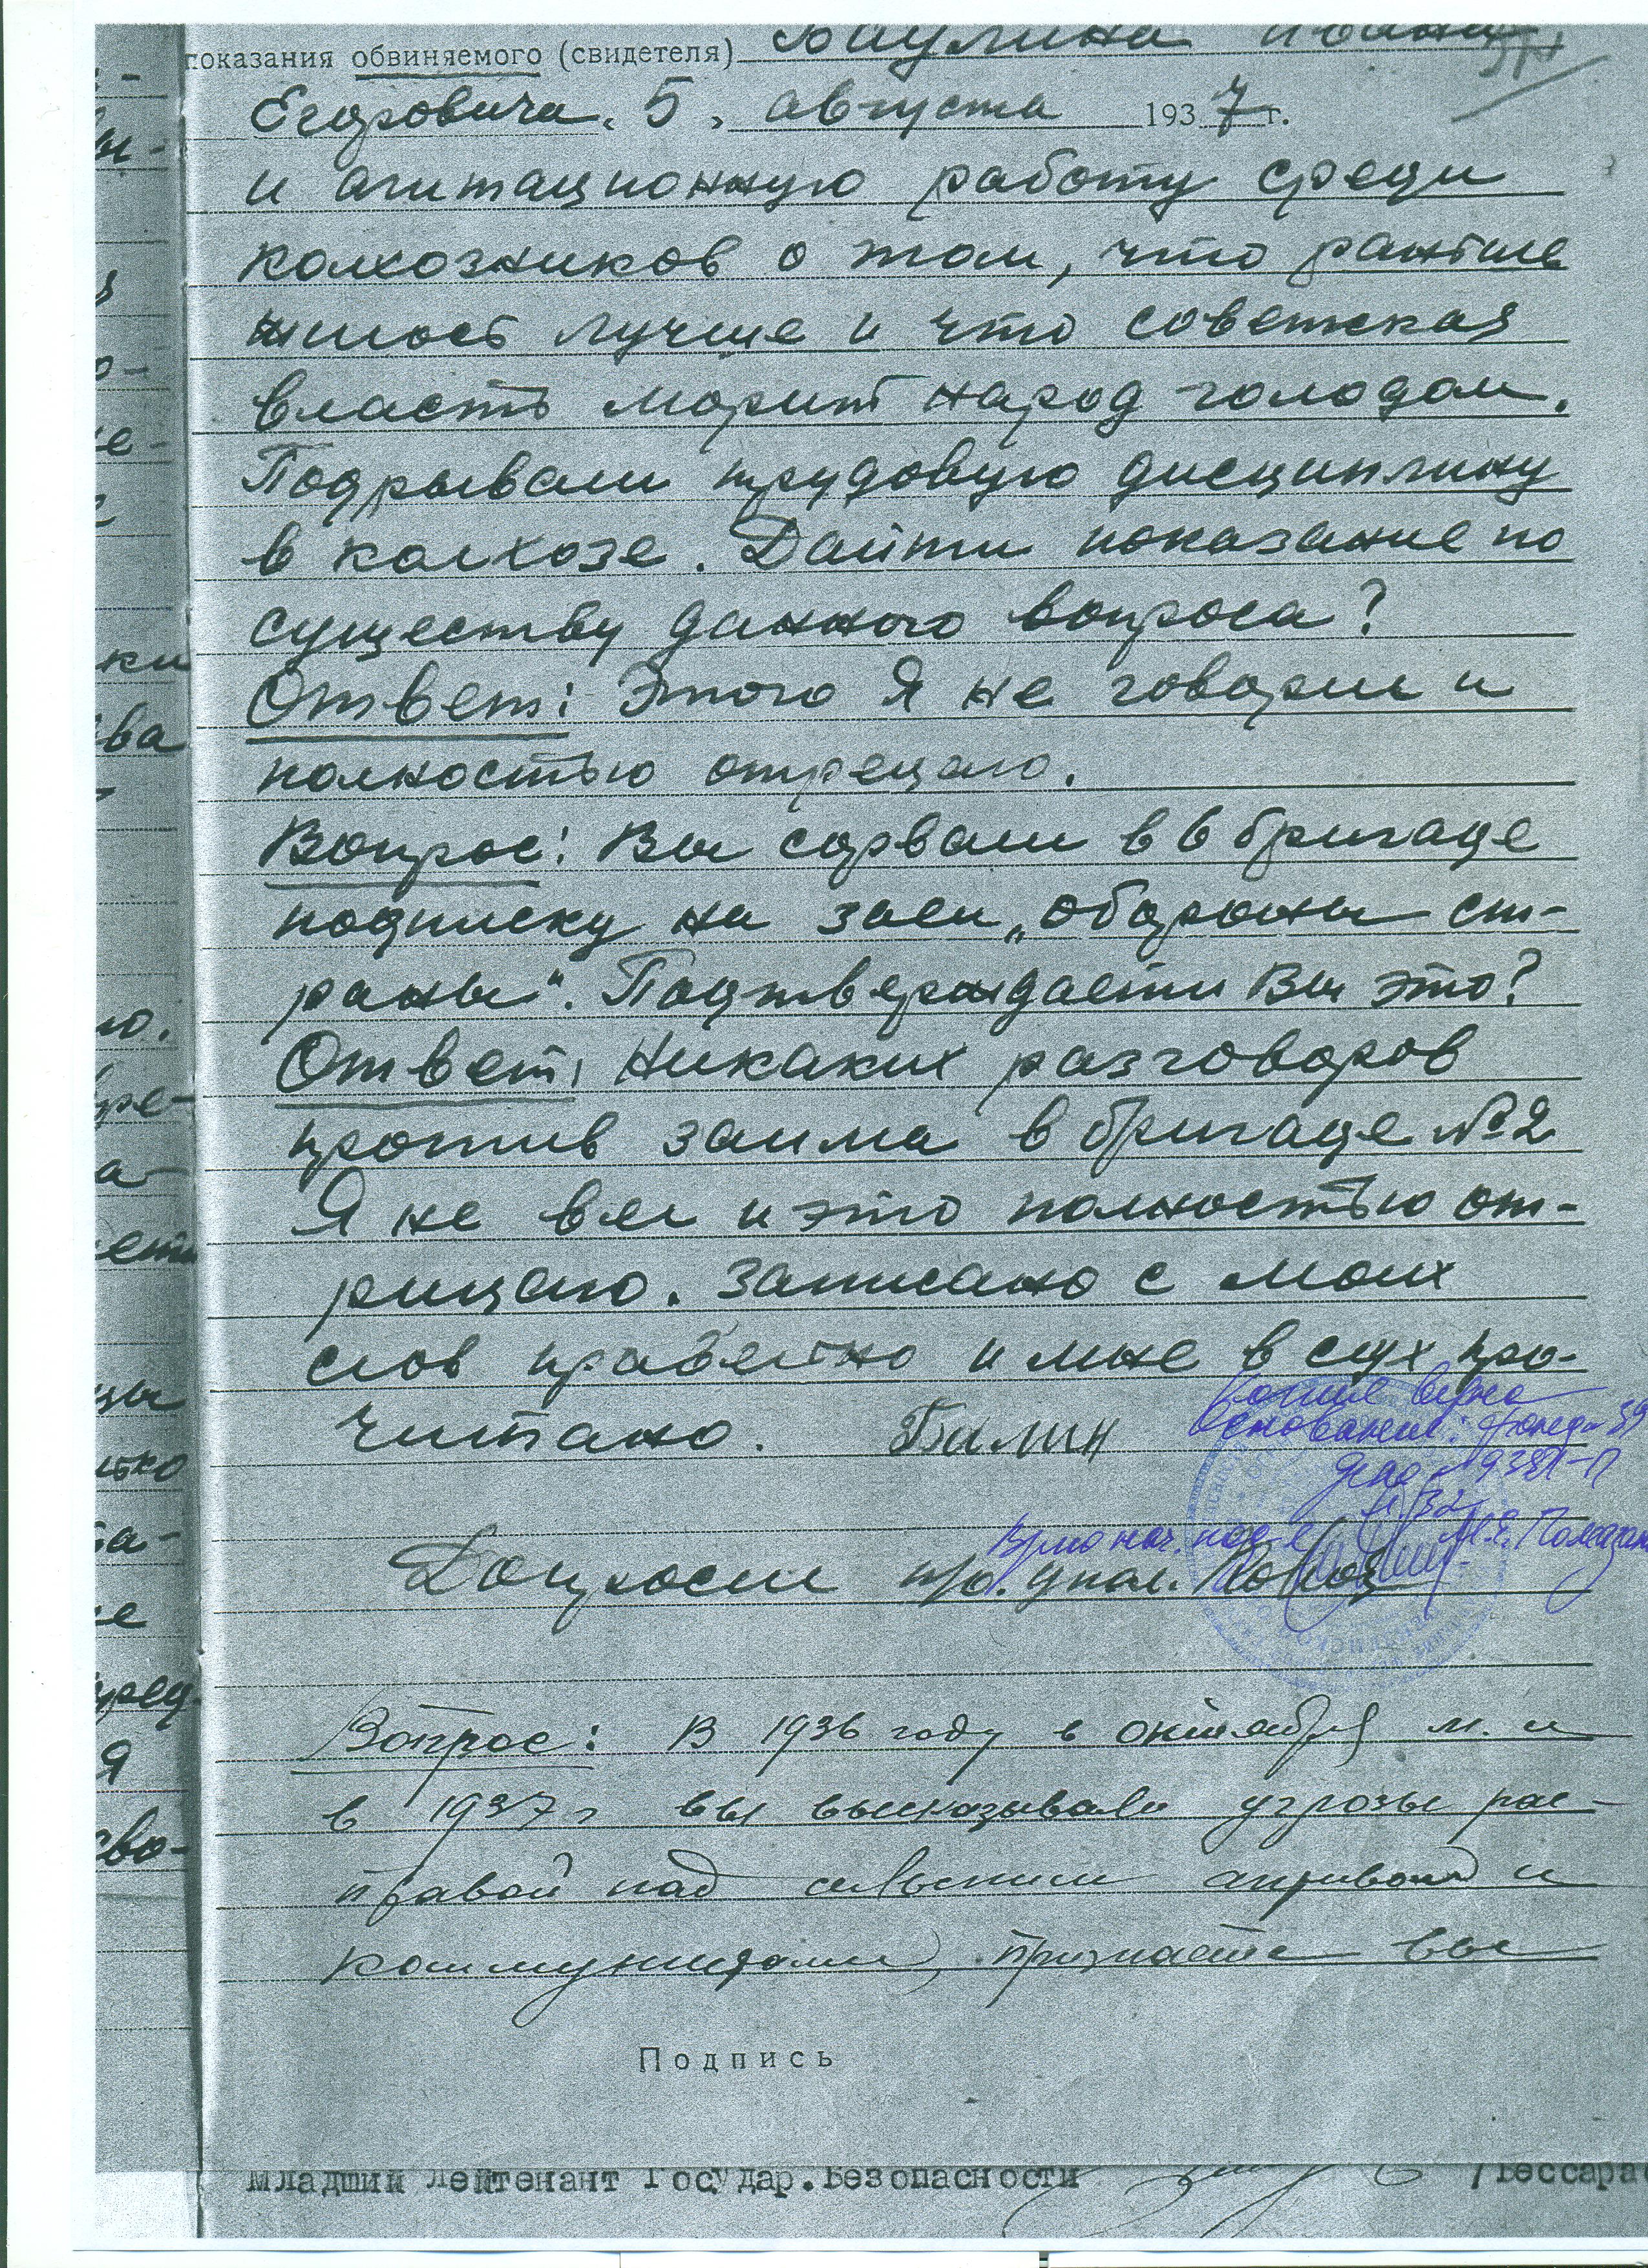 показания обвиняемого (свидетеля) Баулина Ивана
Егоровича „5„ августа 1937 г.
и агитационную работу среди
колхозников о том, что раньше
жилось лучше и что советская
власть морит народ голодом.
Подрывали трудовую дисциплину
в колхозе. Дайти показание по
существу данного вопроса?
Ответ: Этого Я не говорил и
полностью отрецаю.
Вопрос: Вы сорвали в 6 бригаде
подписку на заем „обороны ст-
раны". Подтверждаети Вы это?
Ответ: Никаких разговоров
против заима в бригаде №2
Я не вел и это полностью от-
рицаю. Записано с моих
слов правельно и мне в слух про-
читано. Балин
Копия верна
Основание: фонд-
дело
л. 32
Врио нач.
Допросил
Вопрос: В 1936 году в октября м. и
в 1937 г вы высказывали угрозы рас-
правой над сельским активом и
коммунистами, признаете вы
Подпись
Младший Лейтенант Государ.Безопасности /Бессара
ки
ва
ю.
ре-
а-
ко
е
я
сво-